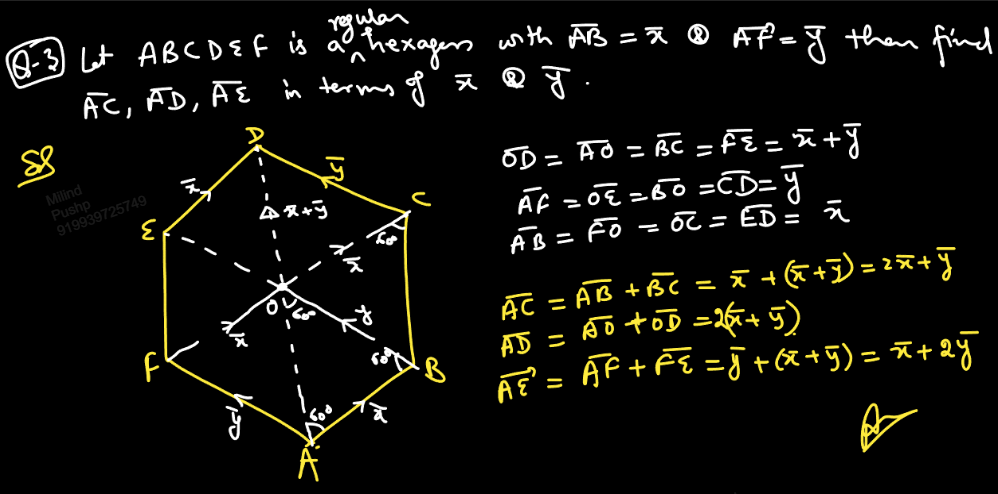 Q-3 Let ABCDEF is a regular hexagon with A̅B̅ = x̅ & A̅F̅ = y̅ then find
A̅C̅, A̅D̅, A̅E̅ in terms of x̅ & y̅.
Sol
Milind
Pushp
919939725749
D
x̅
y̅
x̅+y̅
C
E
60°
x̅
O
60°
y
x̅
F
60°
B
y̅
60°
x̅
A
O̅D̅ = A̅O̅ = B̅C̅ = F̅E̅ = x̅+y̅
A̅F̅ = O̅E̅ = B̅O̅ = C̅D̅ = y̅
A̅B̅ = F̅O̅ = O̅C̅ = E̅D̅ = x̅
A̅C̅ = A̅B̅ + B̅C̅ = x̅ + (x̅+y̅) = 2x̅+y̅
A̅D̅ = A̅O̅ + O̅D̅ = 2(x̅+y̅)
A̅E̅ = A̅F̅ + F̅E̅ = y̅ + (x̅+y̅) = x̅+2y̅